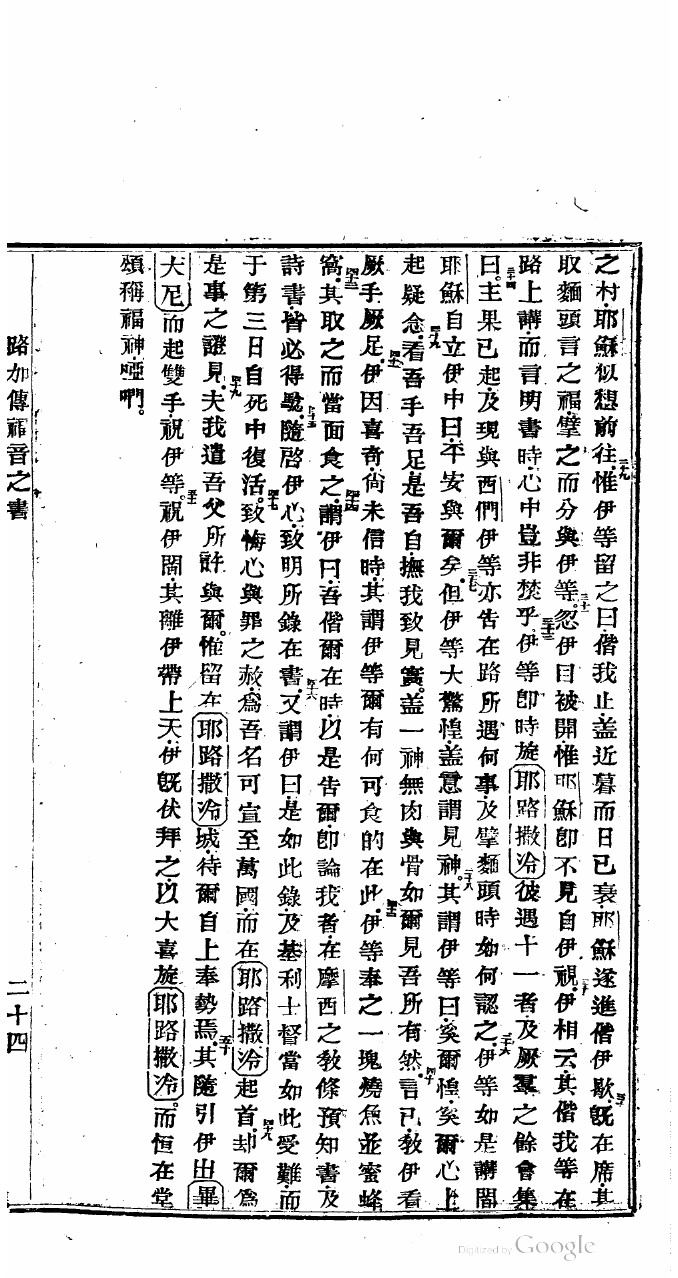 之村、耶穌似想前往、二十九惟伊等留之曰、偕我止、盖近暮而日已衰、耶穌遂進偕伊歇、三十旣在席其
取麵頭言之福、擘之而分與伊等。三十一忽伊目被開、惟耶穌卽不見自伊視。三十二伊相云、其偕我等在
路上講而言明書時、心中豈非焚乎、三十三伊等卽時旋耶路撒冷、彼遇十一者、及厥羣之餘會集
三十四曰、主果已起、及現與西們、三十五伊等亦告在路所遇何事、及擘麵頭時如何認之、三十六伊等如是講間
耶穌自立伊中曰、平安與爾矣。三十七但伊等大驚惶、盖意謂見神。三十八其謂伊等曰、奚爾惶、奚爾心上
起疑念、三十九看吾手吾足、是吾自、撫我致見實。盖一神無肉與骨如爾見吾所有然。四十言已、敎伊看
厥手厥足、四十一伊因喜奇、尙未信時、其謂伊等爾有何可食的在此、四十二伊等奉之一塊燒魚並蜜蜂
窩、四十三其取之而當面食之、四十四謂伊曰、吾偕爾在時、以是告爾、卽論我者、在摩西之敎條預知書及
詩書、皆必得騐、四十五隨啓伊心、致明所錄在書、四十六又謂伊曰、是如此錄、及基利士督當如此受難、而
于第三日自死中復活。四十七致悔心與罪之赦、爲吾名可宣至萬國、而在耶路撒冷起首、四十八却爾爲
是事之證見、四十九夫我遣吾父所許與爾。惟留在耶路撒冷城、待爾自上奉勢焉。五十其隨引伊出畢
大尼而起雙手、祝伊等。五十一祝伊間、其離伊帶上天、伊旣伏拜之、以大喜旋耶路撒冷。而恒在堂
頌稱福神、啞㗎。
路加傳福音之書
二十四
Digitized by Google